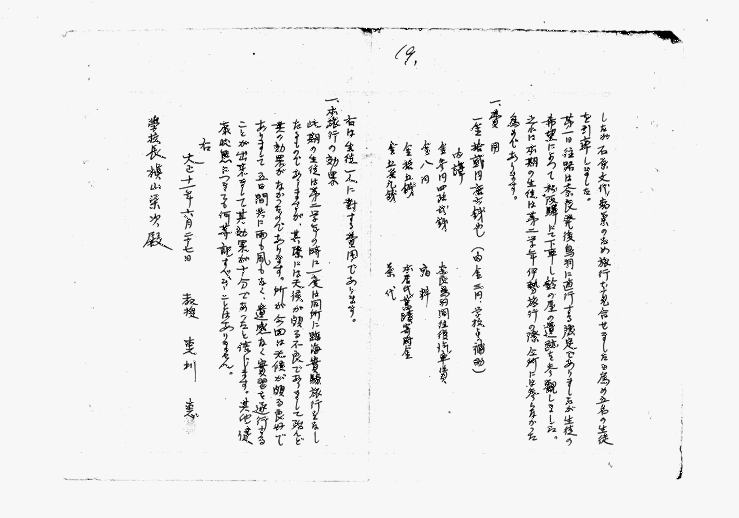 19.
しなが石原文代病気のため旅行を見合せましたる為め五名の生徒
を引率しました。
第一日往路は奈良発後鳥羽に直行する決定でありましたが生徒の
希望によつて松阪駅にて下車し鈴の屋の遺跡を参観しました。
之れは本期の生徒は第二学年伊勢旅行の際全所には参らなかつた
為めであります。
一、費用
一金拾 円 六銭也(内金三円、学校より補助)
内譯
金 円四拾弐銭 奈良鳥羽間往復汽車賃
金八円 宿料
金拾五銭 本居氏旧蹟寄附金
金五拾九銭 茶代
右は生徒一人に対する費用であります。
一、本旅行の効果
此期の生徒は第二学年の時に一度は同所に臨海実験旅行をなし
たものでありますが其際には天候が頗る不良でありまして殆んど
其の効果がなかつたのであります。所が今回は天候が頗る良好で
ありまして五日間共に雨も風もなく、遺憾なく実習を遂行する
ことが出来まして其効果が十分であつたと信じます。其他
衛生状態につきても何等記すべきことはありません。
右
大正十一年六月二十七日
教授
学校長 槙山栄次殿